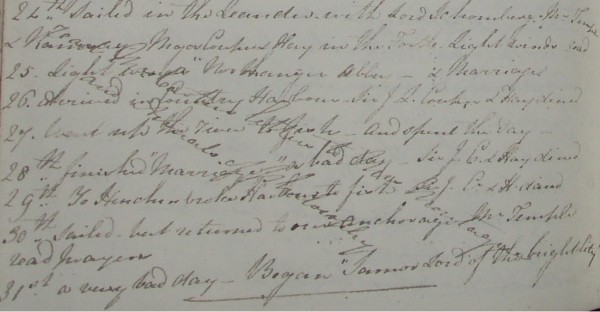 24th Sailed in the Leander with Lord Schomberg. Mr Temple
& Major Couper & Hay in the Forte. Light winds read
25. Light winds" Northanger Abbey - & Marriage
26. Arrived in Country Harbour Sir J. L. Couper & Hay dined
27. Went up the river to fish - And spent the day -
28th finished "Marriage" a bad day - Sir J. C. & Hay dined
29th. To Hinchinbroke Harbour to fish Sir J. C. & H. dined
30th Sailed but returned to our anchorage Mr Temple
read prayers
31st a very bad day - Began "Samor Lord of the bright City